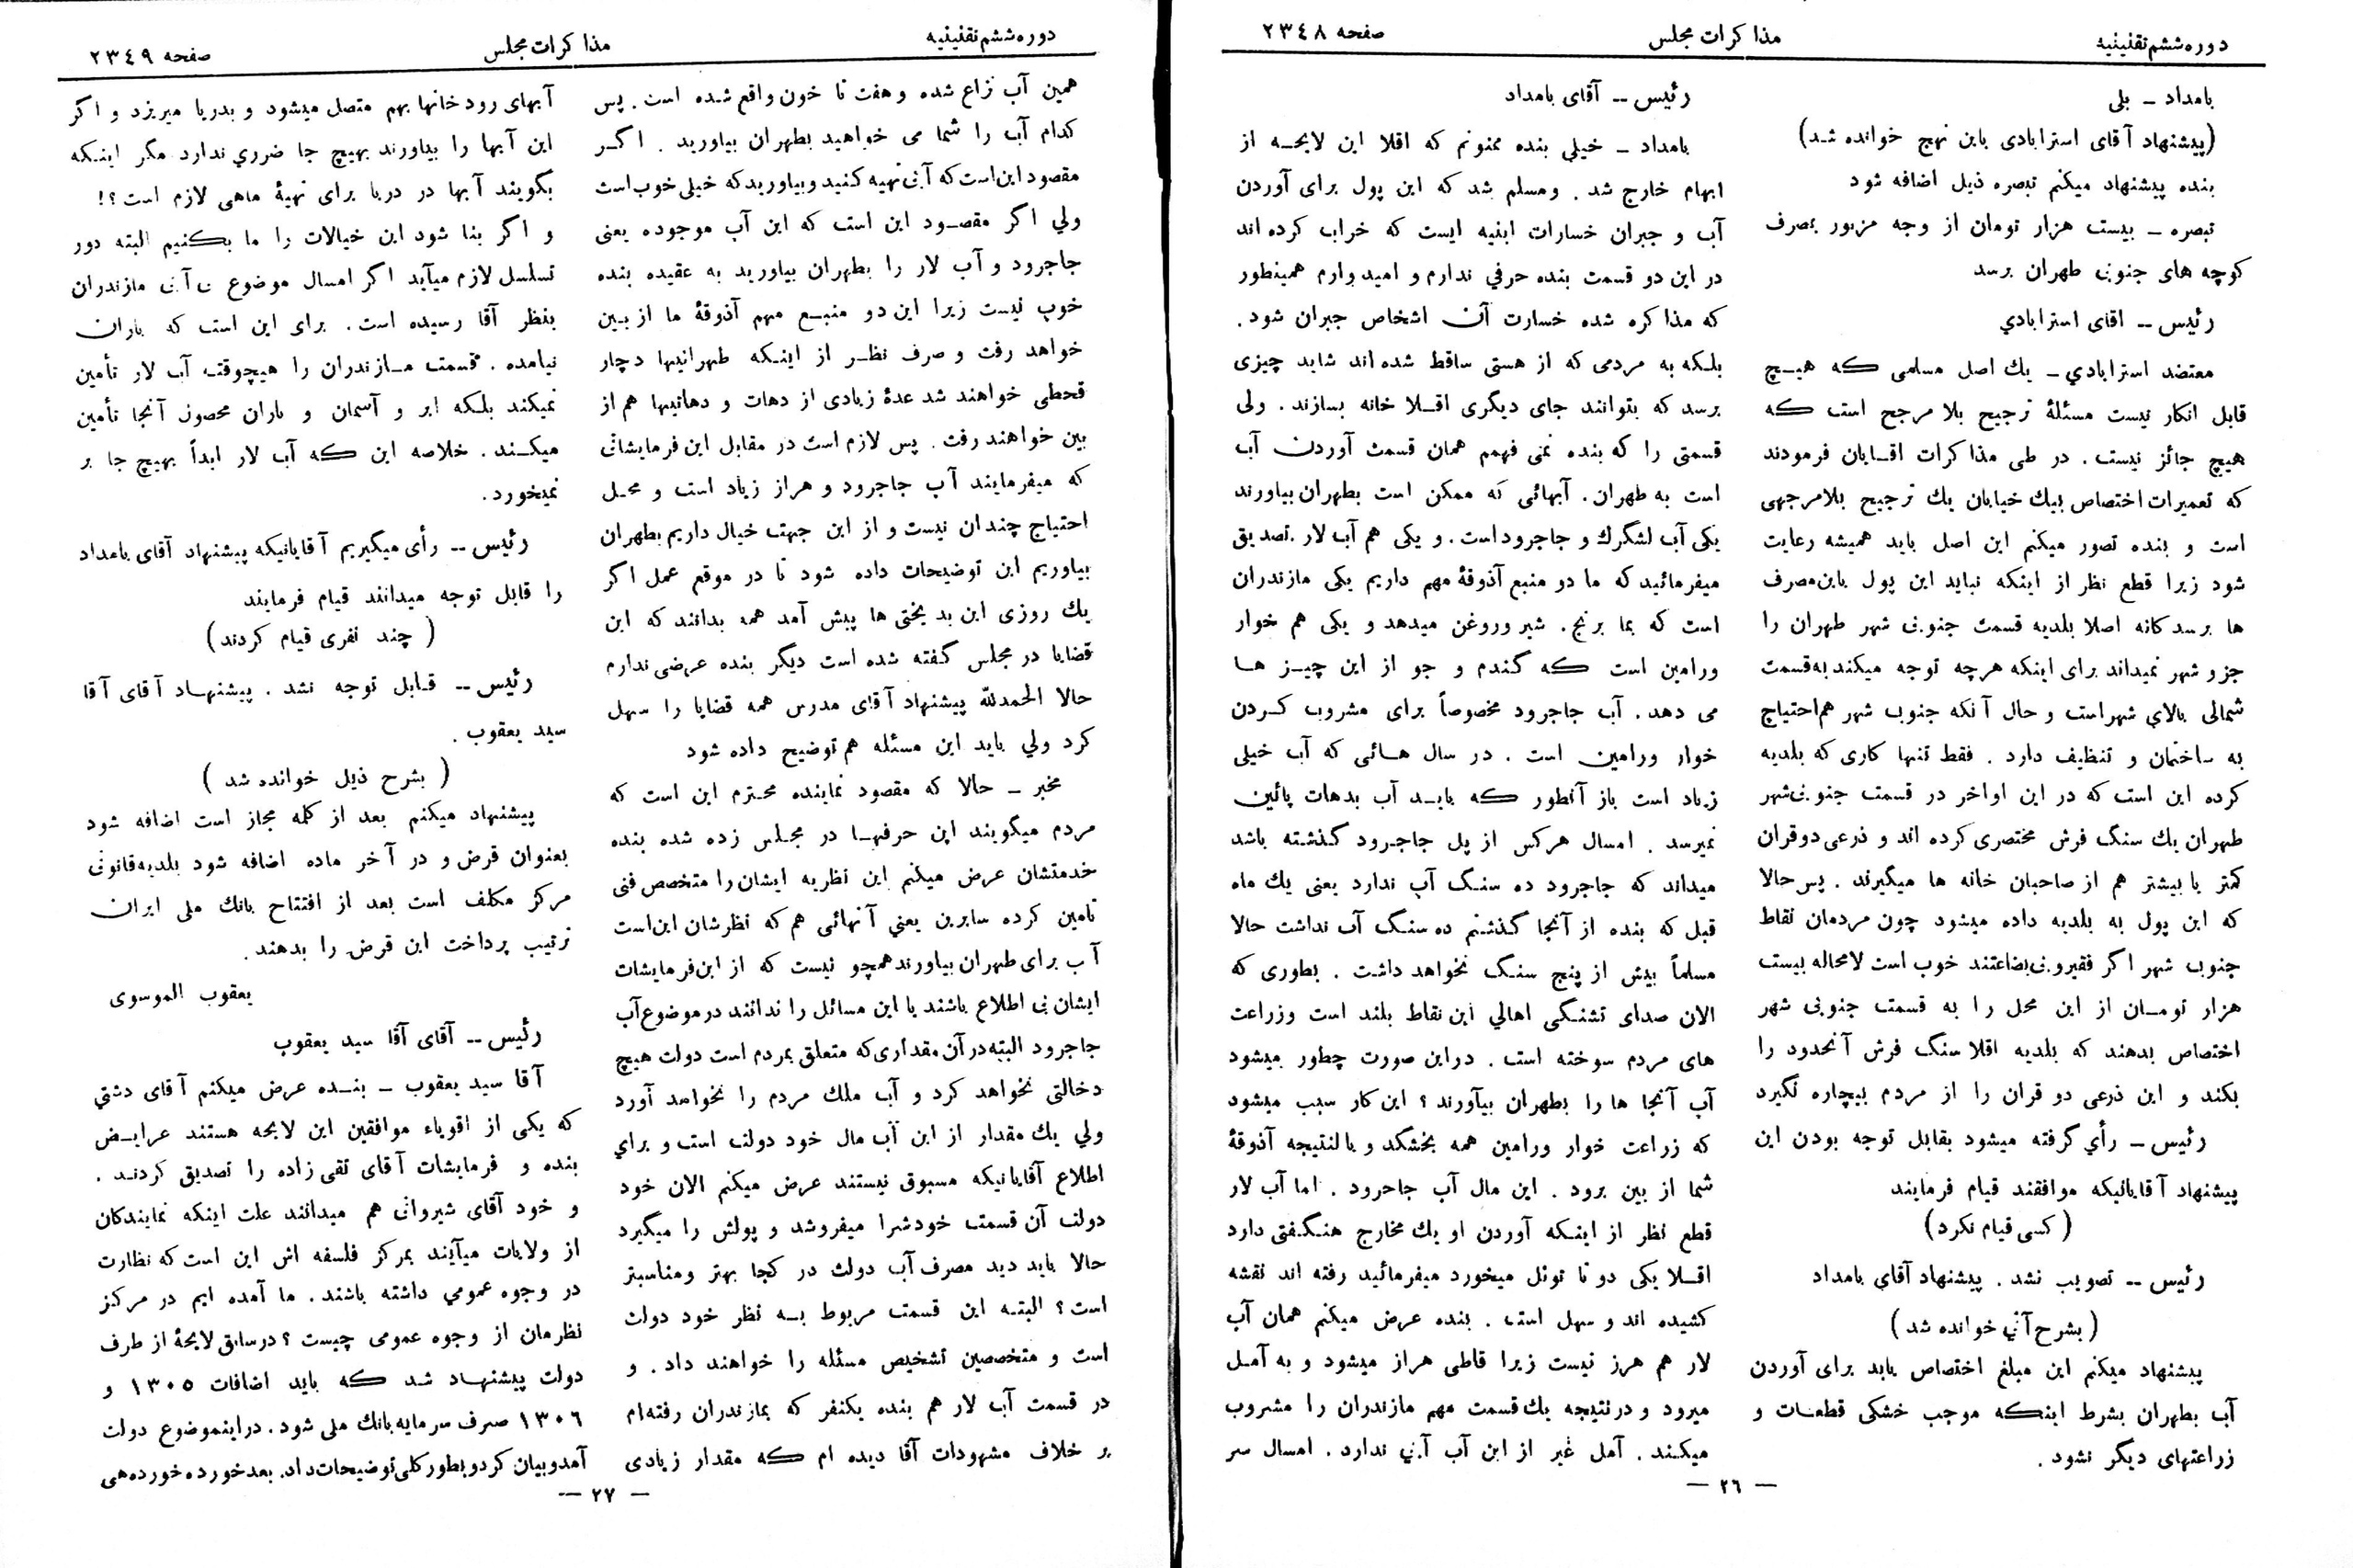 دوره ششم تقنینیه
مذاکرات مجلس
صفحه ۲۳٤۸
بامداد ـ بلی
(پیشنهاد آقای استرابادی باین نهج خوانده شد)
بنده پیشنهاد میکنم تبصره ذیل اضافه شود
تبصره ـ بیست هزار تومان از وجه مزبور بمصرف
کوچه های جنوبی طهران برسد
رئیس -- اقای استرابادي
معتضد استرابادي ـ یك اصل مسلمی که هیـچ
قابل انکار نیست مسئلهٔ ترجیح بلا مرجح است که
هیچ جائز نیست . در طی مذاکرات اقـایان فرمودند
که تعمیرات اختصاص بیك خیابان یك ترجیح بلامرجهی
است و بنده تصور میکنم این اصل باید همیشه رعایت
شود زیرا قطع نظر از اینکه نباید این پول باین‌مصرف
ها برسد کانه اصلا بلدیه قسمت جنوبی شهر طهران را
جزو شهر نمیداند برای اینکه هرچه توجه میکند به‌قسمت
شمالی بالاي شهراست و حال آنکه جنوب شهر هم‌احتیاج
به ساختمان و تنظیف دارد . فقط تنها کاری که بلدیه
کرده این است که در این اواخر در قسمت جنوبی‌شهر
طهران یك سنگ فرش مختصری کرده اند و ذرعی دوقران
کمتر یا بیشتر هم از صاحبان خانه ها میگیرند . پس حالا
که این پول به بلدیه داده میشود چون مردمان نقاط
جنوب شهر اگر فقیروبی‌بضاعتند خوب است لامحاله بیست
هزار تومـان از این محل را به قسمت جنوبی شهر
اختصاص بدهند که بلدیه اقلا سنگ فرش آنحدود را
بکند و این ذرعی دو قران را از مردم بیچاره نگیرد
رئیس ـ رأي گرفته میشود بقابل توجه بودن این
پیشنهاد آقایانیکه موافقند قیام فرمایند
(کسی قیام نکرد)
رئیس -- تصویب نشد . پیشنهاد آقای بامداد
(بشرح آتي خوانده شد)
پیشنهاد میکنم این مبلغ اختصاص یابد برای آوردن
آب بطهران بشرط اینکه موجب خشکی قطعـات و
زراعتهای دیگر نشود .
رئیس -- آقای بامداد
بامداد ـ خیلی بنده ممنونم که اقلا این لایحـه از
ابهام خارج شد . ومسلم شد که این پول برای آوردن
آب و جبران خسارات ابنیه ایست که خراب کرده اند
در این دو قسمت بنده حرفي ندارم و امیدوارم همینطور
که مذاکره شده خسارت آن اشخاص جبران شود .
بلـکه به مردمی که از هستی ساقط شده اند شاید چیزی
برسد که بتوانند جای دیگری اقـلا خانه بسازند . ولی
قسمتی را که بنده نمی فهمم همان قسمت آوردن آب
است به طهران . آبهائی که ممکن است بطهران بیاورند
یکی آب لشگرك و جاجروداست . و یکی هم آب لار .تصدیق
میفرمائید که ما دو منبع آذوقهٔ مهم داریم یکی مازندران
است که بما برنج . شیر وروغن میدهد و یکی هم خوار
ورامین است که گندم و جو از این چیـز هـا
می دهد . آب جاجرود مخصوصاً برای مشروب کـردن
خوار ورامین است . در سال هـائی که آب خیلی
زیاد است باز آنطور که بایـد آب بدهات پائین
نمیرسد . امسال هرکس از پل جاجرود گذشته باشد
میداند که جاجرود ده سنـگ آب ندارد یعنی یك ماه
قبل که بنده از آنجا گذشتم ده سنـگ آب نداشت حالا
مسلماً بیش از پنج سنـگ نخواهد داشت . بطوری که
الان صدای تشنـگی اهالي این نقاط بلند است وزراعت
های مردم سوخته است . دراین صورت چطور میشود
آب آنجا ها را بطهران بیآورند ؟ این کار سبب میشود
که زراعت خوار ورامین همه بخشکد و بالنتیجه آذوقهٔ
شما از بین برود . این مال آب جاجرود . اما آب لار
قطع نظر از اینـکه آوردن او یك مخارج هنـگـفتی دارد
اقـلا یکی دو تا تونل میخورد میفرمائید رفته اند نقشه
کشیده اند و سهل است . بنده عرض میکنم همان آب
لار هم هرز نیست زیرا قاطی هراز میشود و به آمـل
میرود و در نتیجه یك قسمت مهم مازندران را مشروب
میکـند . آمل غیر از این آب آبي ندارد . امسال سر
— ۲٦ —
دوره ششم تقنینیه
مذاکرات مجلس
صفحه ۲۳٤۹
همین آب نزاع شده وهفت تا خون واقع شده است . پس
کدام آب را شما می خواهید بطهران بیاورید . اگـر
مقصود این است که آبی تهیه کنید و بیاورید که خیلی خوب است
ولي اگر مقصـود این است که این آب موجوده یعنی
جاجرود و آب لار را بطهران بیاورید به عقیده بنده
خوب نیست زیرا این دو منبـع مهم آذوقهٔ ما از بـین
خواهد رفت و صرف نظـر از اینـکه طهرانیها دچار
قحطی خواهند شد عدهٔ زیادی از دهات و دهاتیها هم از
بین خواهند رفت . پس لازم است در مقابل این فرمایشاتی
که میفرمایند آب جاجرود و هراز زیاد است و محـل
احتیاج چندان نیست و از این جهت خیال داریم بطهران
بیاوریم این توضیحات داده شود تا در موقع عمل اگر
یك روزی این بد بختی ها پیش آمد همه بدانند که این
قضایا در مجلس گفته شده است دیگر بنده عرضی ندارم
حالا الحمدلله پیشنهاد آقای مدرس همه قضایا را سهل
کرد ولي باید این مسئله هم توضیح داده شود
مخبر ـ حالا که مقصود نماینده محـترم این است که
مردم میگویند این حرفهـا در مجلس زده شده بنده
خدمتشان عرض میکنم این نظریه ایشان را متخصص فنی
تامین کرده سایرین یعني آنهائی هم که نظرشان این‌است
آب برای طهران بیاورند همچو نیست که از این‌فرمایشات
ایشان بی اطلاع باشند یا این مسائل را ندانند در موضوع آب
جاجرود البته درآن مقداری که متعلق بمردم است دولت هیچ
دخالتی نخواهد کرد و آب ملك مردم را نخواهد آورد
ولي یك مقدار از این آب مال خود دولت است و براي
اطلاع آقایانیکه مسبوق نیستند عرض میکنم الان خود
دولت آن قسمت خودشرا میفروشد و پولش را میگیرد
حالا باید دید مصرف آب دولت در کجا بهتر ومناسبتر
است ؟ البتـه این قسمت مربوط بـه نظر خود دولت
است و متخصصین تشخیص مسئله را خواهند داد . و
در قسمت آب لار هم بنده یکنفر که بمازندران رفته‌ام
بر خلاف مشهودات آقا دیده ام که مقدار زیادی
آبهای رودخانها بهم متصل میشود و بدریا میریزد و اگر
این آبها را بیاورند بهیچ جا ضرري ندارد مگر اینـکه
بگویند آبها در دریا برای تهیهٔ ماهی لازم است ؟!
و اگر بنا شود این خیالات را ما بـکنیم البته دور
تسلسل لازم میآید اگر امسال موضوع بی آبی مازندران
بنظر آقا رسیده است . برای این است که باران
نیامده . قسمت مـازندران را هیچوقت آب لار تأمین
نمیکند بلـکه ابر و آسمان و باران محصول آنجا تأمین
میکـند . خلاصه این که آب لار ابداً بهیچ جا بر
نمیخورد .
رئیس -- رأی میگیریم آقایانیکه پیشنهاد آقای بامداد
را قابل توجه میدانند قیام فرمایند
( چند نفری قیام کردند)
رئیس -- قـابل توجه نشد . پیشنهـاد آقای آقا
سید یعقوب .
( بشرح ذیل خوانده شد )
پیشنهاد میکنم بعد از کلمه مجاز است اضافه شود
بعنوان قرض و در آخر ماده اضافه شود بلدیه‌قانونی
مرکز مکلف است بعد از افتتاح بانك ملی ایران
ترتیب پرداخت این قرض را بدهند .
یعقوب الموسوی
رئیس -- آقای آقا سید یعقوب
آقا سید یعقوب ـ بنـده عرض میکنم آقای دشتي
که یکی از اقویاء موافقین این لایحه هستند عرایـض
بنده و فرمایشات آقای تقی زاده را تصدیق کردنـد .
و خود آقای شیروانی هم میدانند علت اینکه نمایندکان
از ولایات میآیند بمرکز فلسفه اش این است که نظارت
در وجوه عمومي داشته باشند . ما آمده ایم در مرکز
نظرمان از وجوه عمومی چیست ؟ درسابق لایحهٔ از طرف
دولت پیشنهـاد شد که باید اضافات ۱۳۰٥ و
۱۳۰٦ صرف سرمایه بانك ملی شود . دراینموضوع دولت
آمدوبیان کردو بطور کلی توضیحات داد. بعد خورده خورده هی
— ۲۷ —